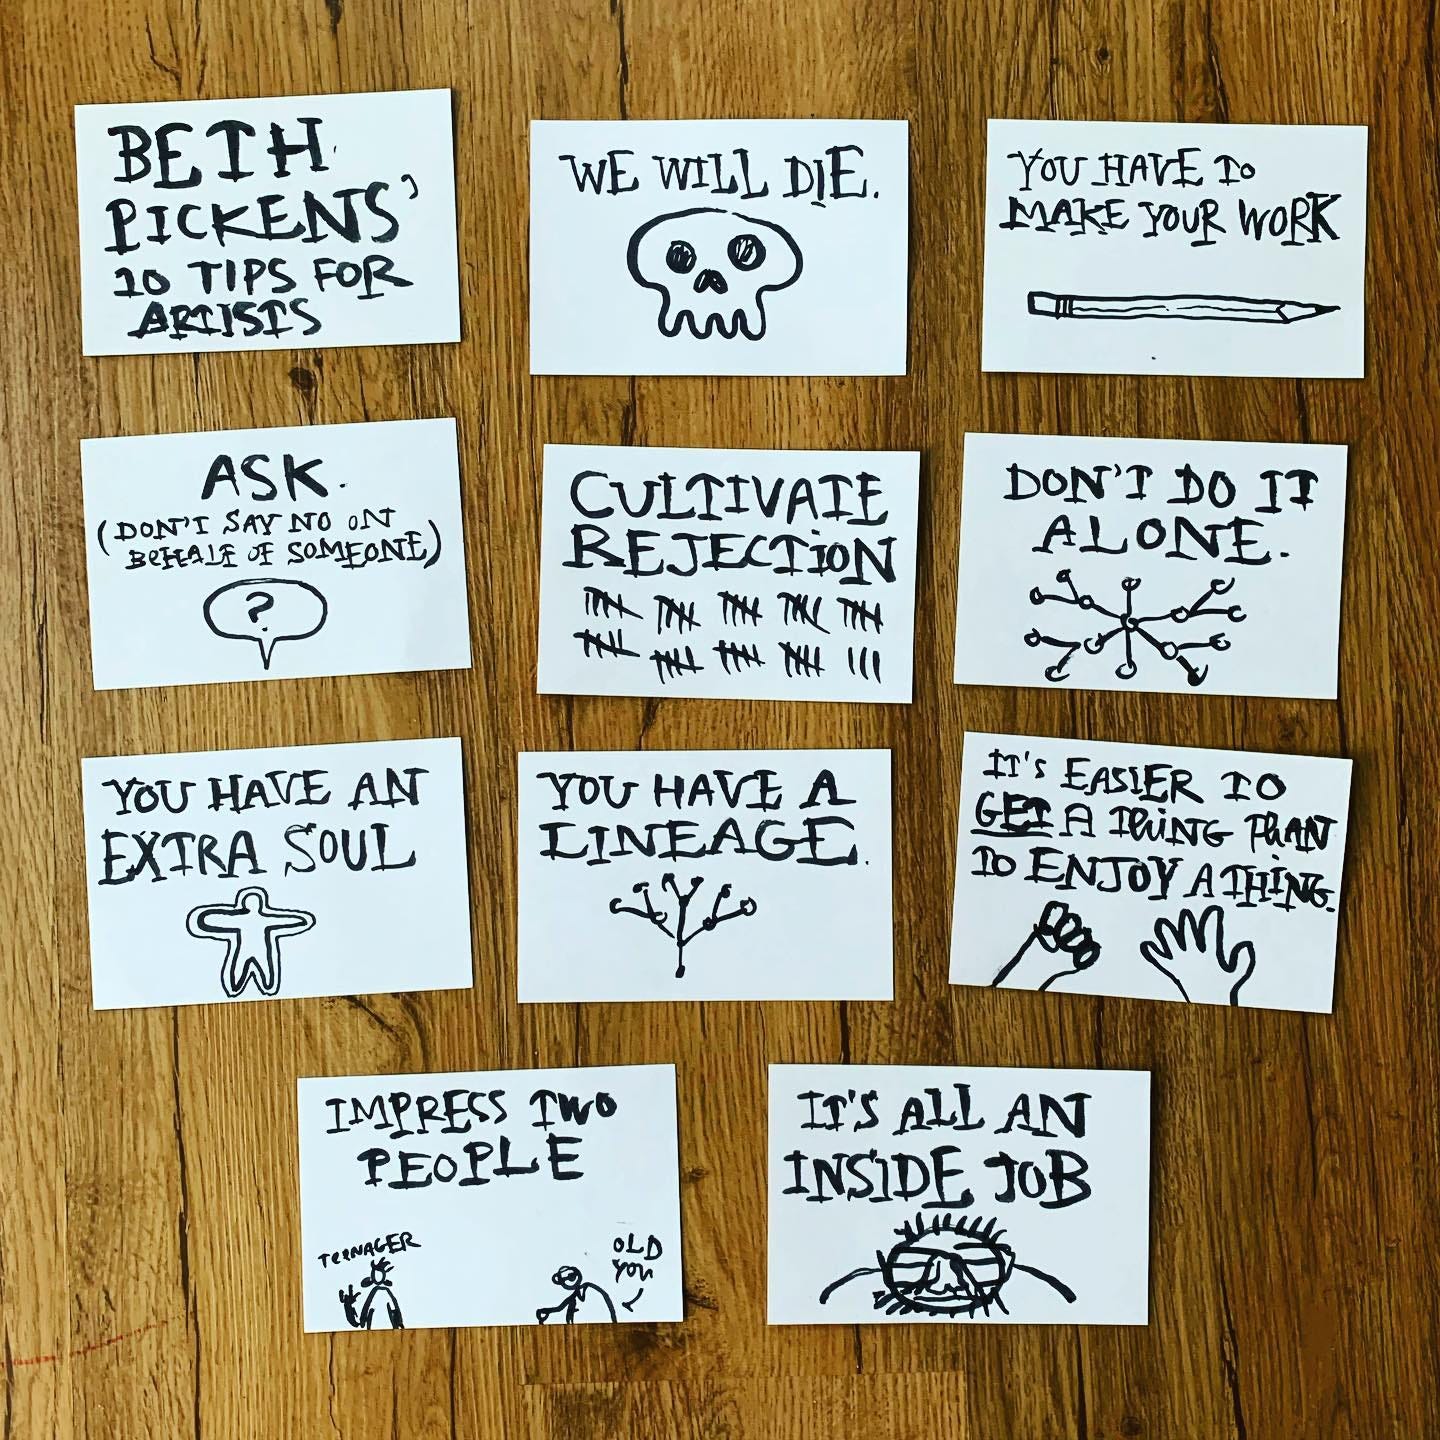 BETH
PICKENS'
10 TIPS FOR
ARTISTS
WE WILL DIE.
YOU HAVE TO
MAKE YOUR WORK
ASK.
(DON'T SAY NO ON
BEHALF OF SOMEONE)
?
CULTIVATE
REJECTION
DON'T DO IT
ALONE.
YOU HAVE AN
EXTRA SOUL
YOU HAVE A
LINEAGE.
IT'S EASIER TO
GET A THING THAN
TO ENJOY A THING.
IMPRESS TWO
PEOPLE
TEENAGER
OLD
YOU
IT'S ALL AN
INSIDE JOB